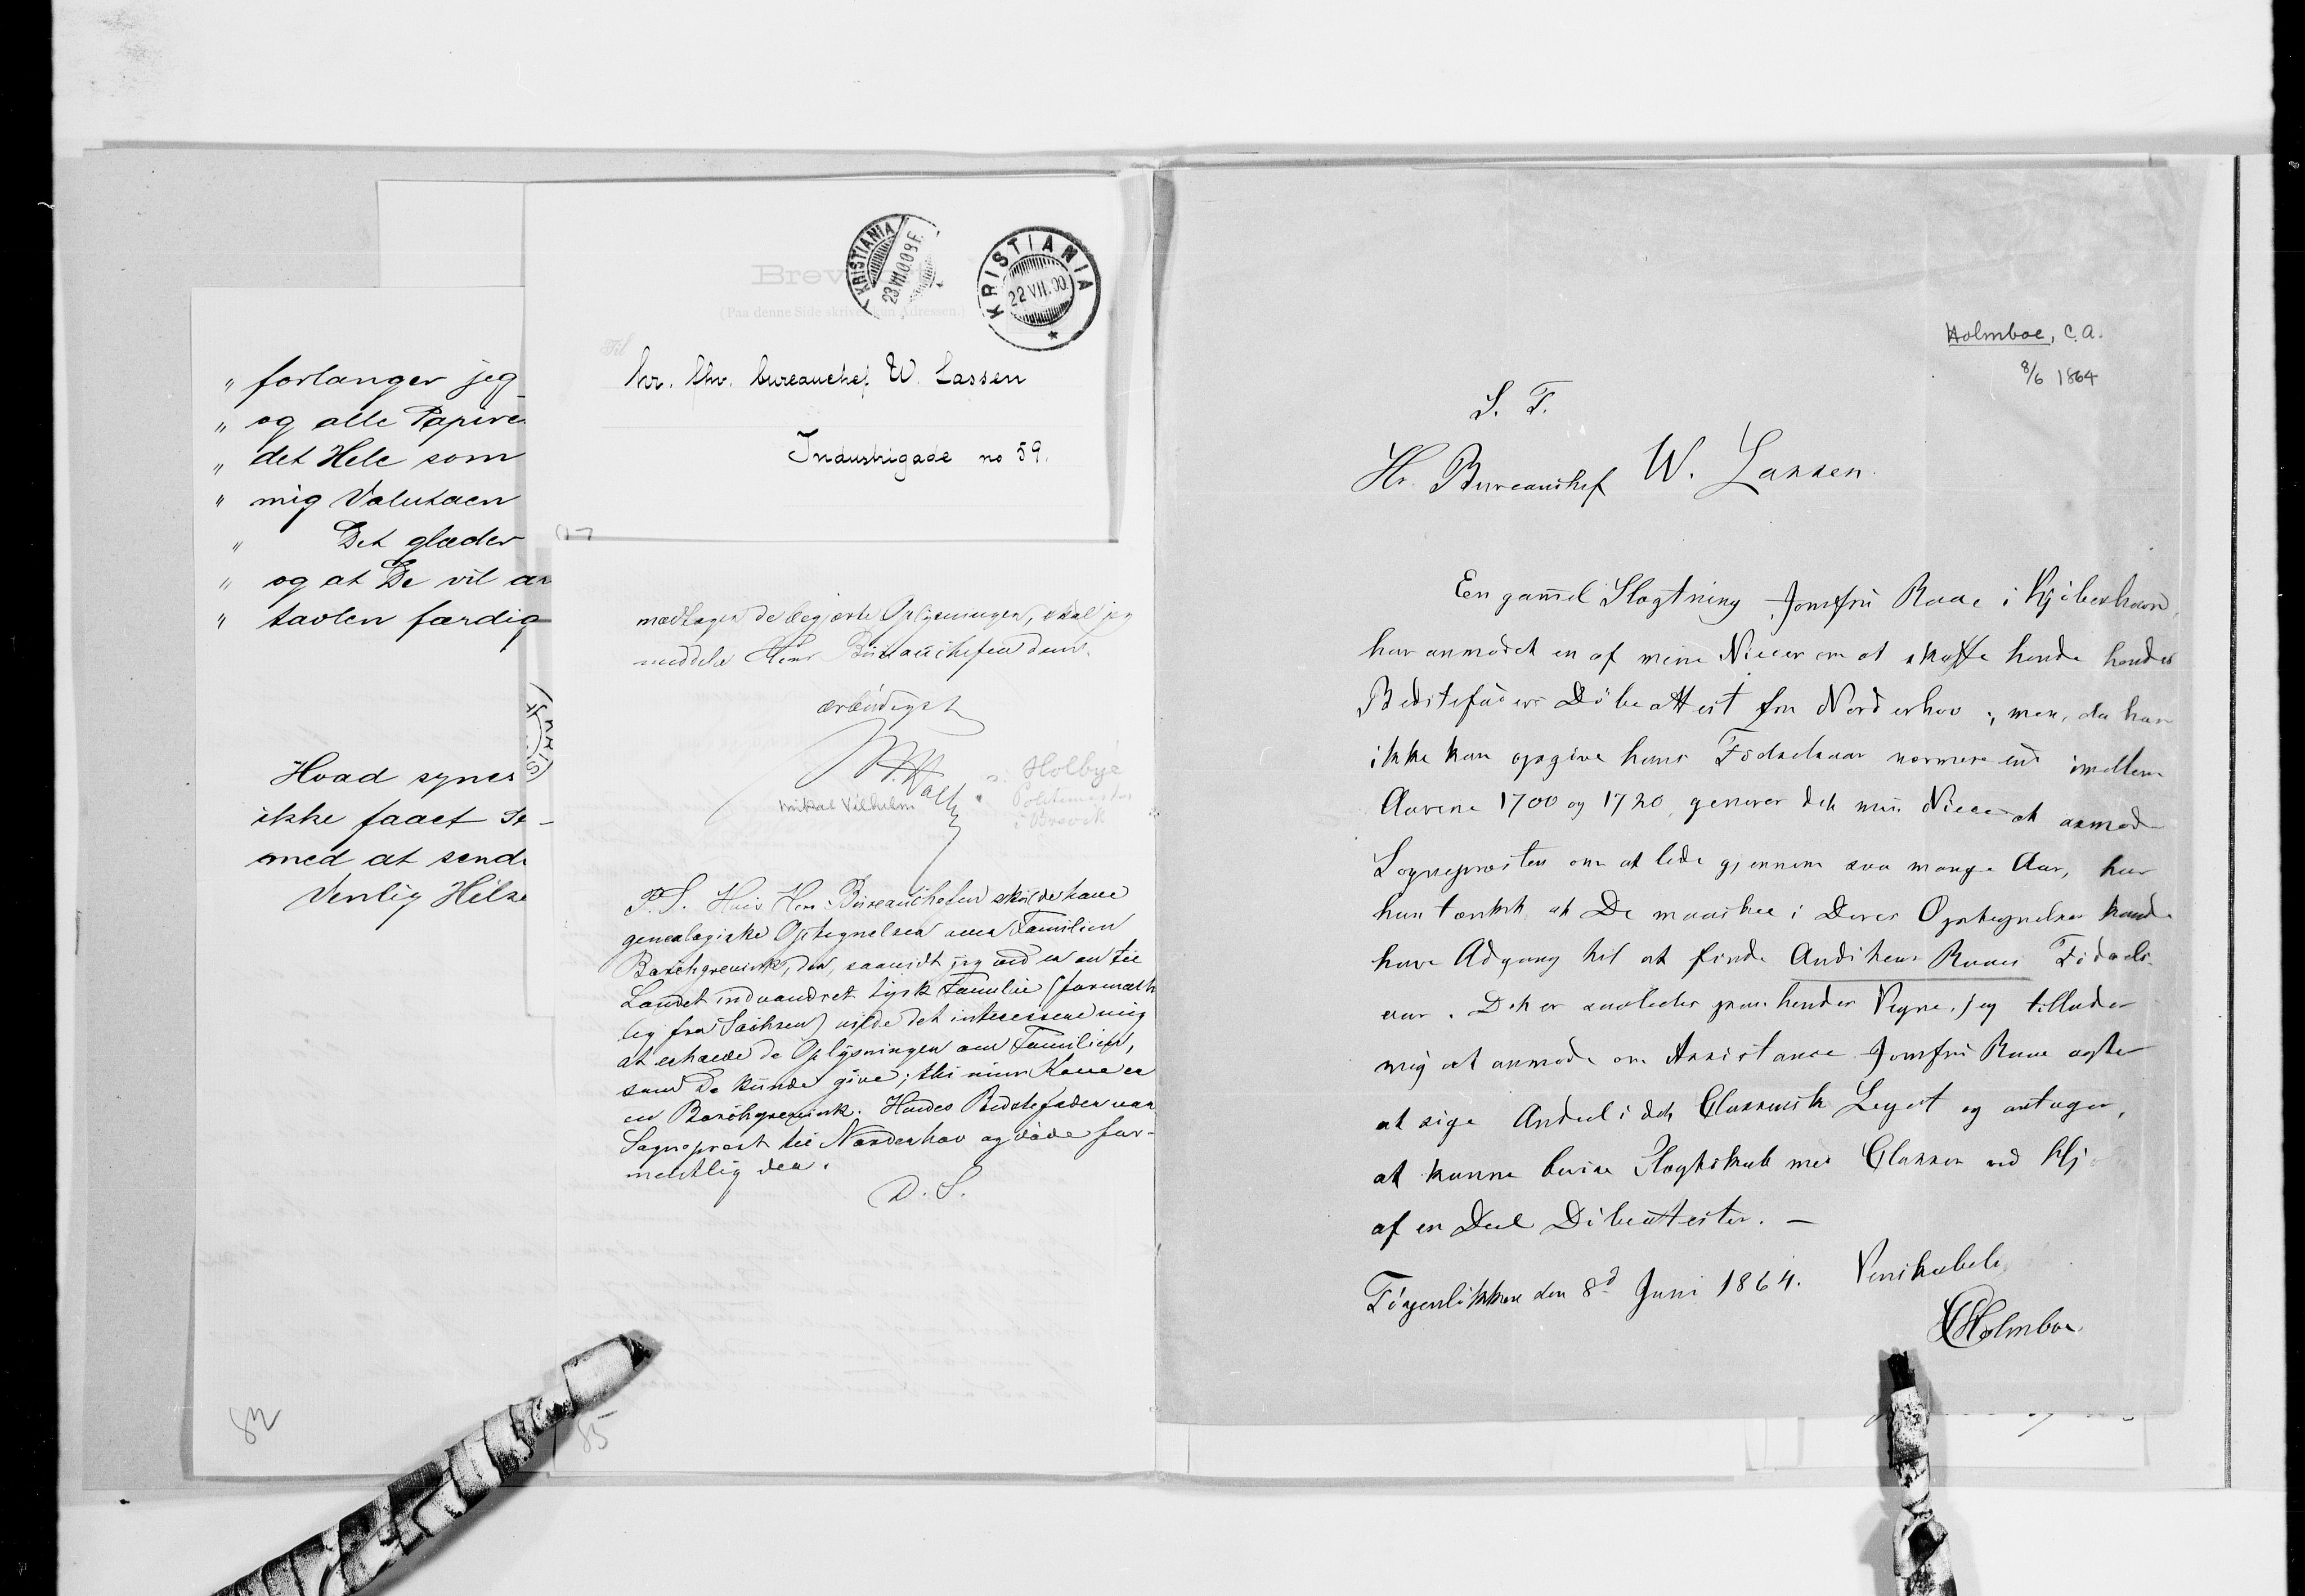 " forlanger jeg
" og alle Papire
" det Hele som
" mig Valutaen
" Det glæder
" og at De vil
" tavlen færdig
Hvad synes
ikke faaet
med at send
Venlig Hilse
82
KRISTIANIA
23 VII.00 9 F.
KRISTIANIA
22 VII.00
Brev
(Paa denne Side skrives kun Adressen.)
Til
hr. bureauchef W. Lassen
Industrigade no 59.
modtager de begjærte Oplysninger, skal jeg
meddele Herr Büreauchefen dem.
ærbödigst
Mikal Vilhelm
Holbye
Politimester
i Brevik
P.S. Hvis Herr Büreauchefen skulde have
genealogiske Optegnelser om Familien
den, saavidt jeg ved er en til
Landet indvandret tysk Familie (formentlig
fra Sachsen) vilde det interessere mig
at erholde de Oplysninger om Familien,
som De kunde give; thi min Kone er
en Hendes Bedstefader var
Sogneprest til Norderhov og døde for-
mentlig der.
D. S.
85
Holmboe, C.A.
8/6 1864
S. T.
Hr. Bureauchef W. Lassen.
En gammel Slægtning Jomfru Raae i Kjöbenhavn,
har anmodet en af mine Niecer om at skaffe hende hendes
Bedstefaders Döbeattest fra Norderhov; men, da hun
ikke kan opgive hans Födselsaar nærmere end imellem
Aarene 1700 og 1720, generer det min Niece at anmode
Sognepresten om at lede gjennem saa mange Aar, har
hun tænkt, at De maaskee i Deres Optegnelser kunde
have Adgang til at finde Raaes Födsels-
aar. Det er saaledes paa hendes Vegne, jeg tillader
mig at anmode om Assistance. Jomfru Raae agter
at söge Andeel i det Legat og antager,
at kunne bevise Slægtskab med ved Hj
af en Deel Döbeattester. —
den 8d Juni 1864. Venskabel
CAHolmboe.